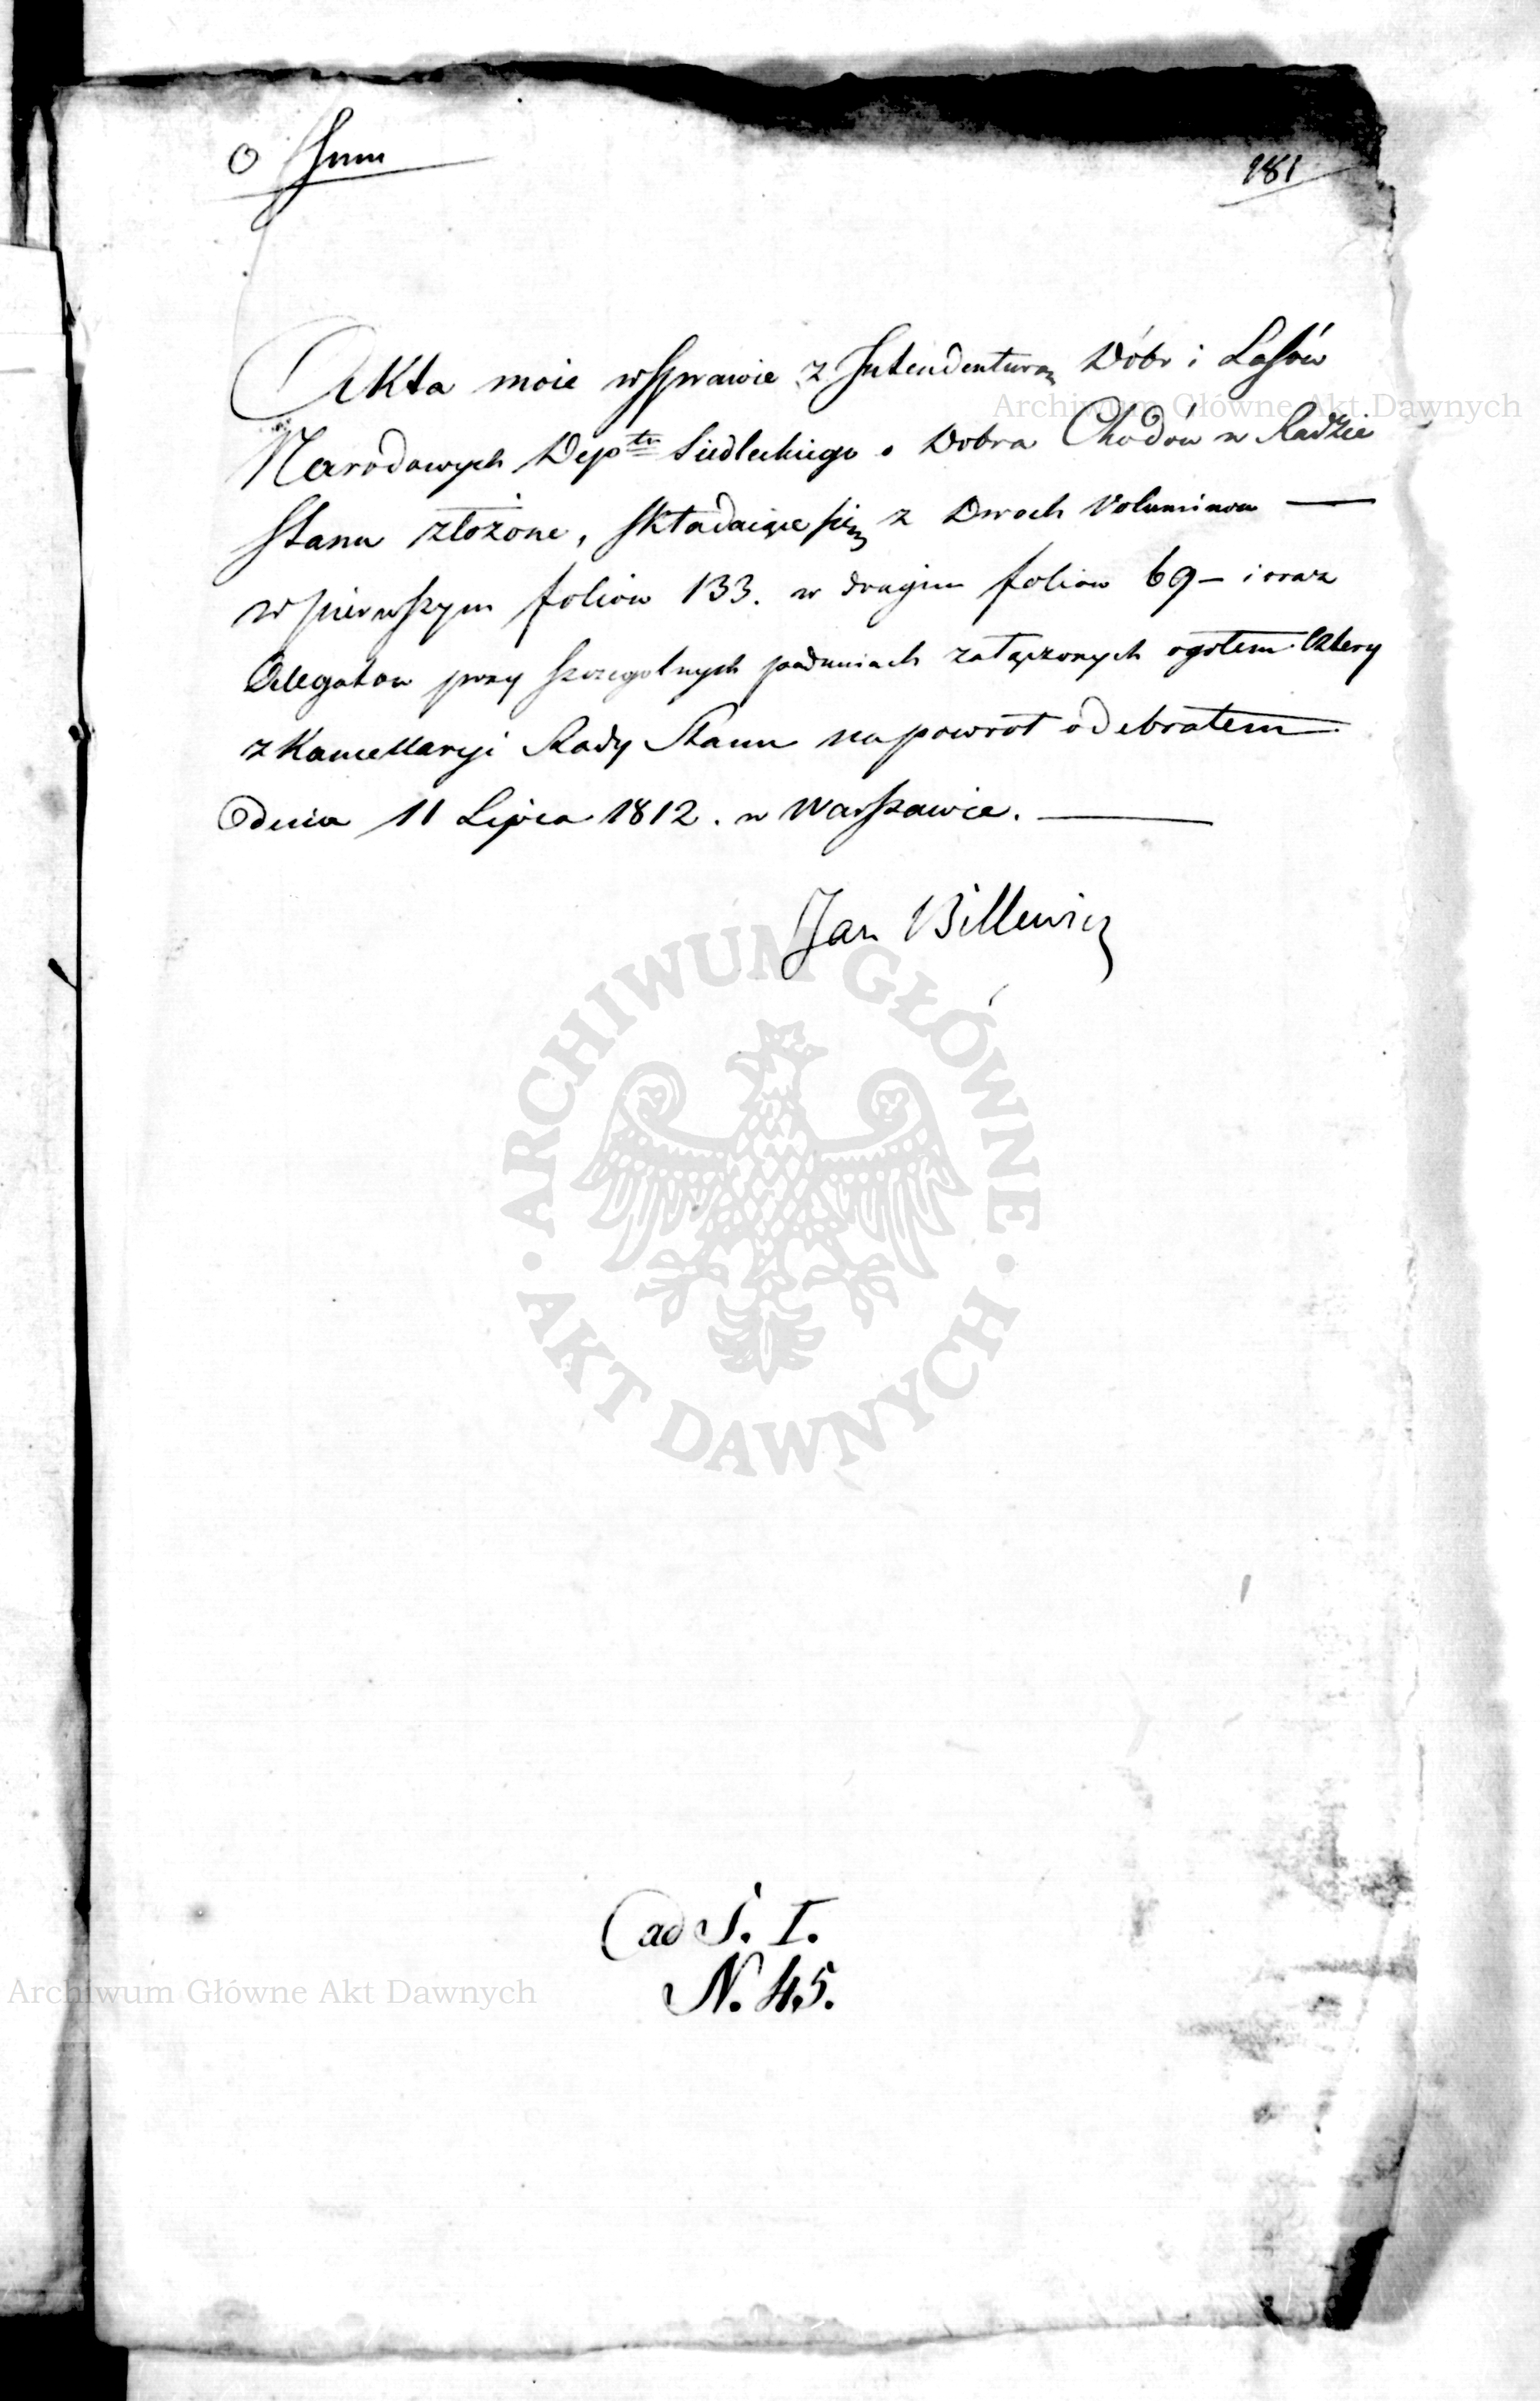 181
Akta moie w sprawie z Intendenturą Dóbr i Lasów
Archiwum Główne Akt Dawnych
Narodowych Dep^tu Siedleckiego o Dobra Chodów w Radzie
Stanu złożone, składaiące się z Dwoch Voluminow —
w pierwszym foliow 133. w drugim foliow 69 – i oraz
Allegatow przy szczegolnych podaniach załączonych ogołem Cztery
z Kancellaryi Rady Stanu na powrot odebrałem
dnia 11 Lipca 1812. w Warszawie. —
Jan Billewicz
ARCHIWUM GŁÓWNE
AKT DAWNYCH
ad S. I.
Archiwum Główne Akt Dawnych
N. 45.